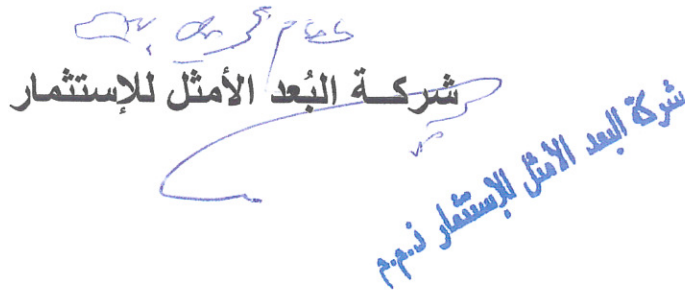 شركـــة البُعد الأمثل للإستثمار
شركة البعد الأمثل للإستثمار ذ.م.م